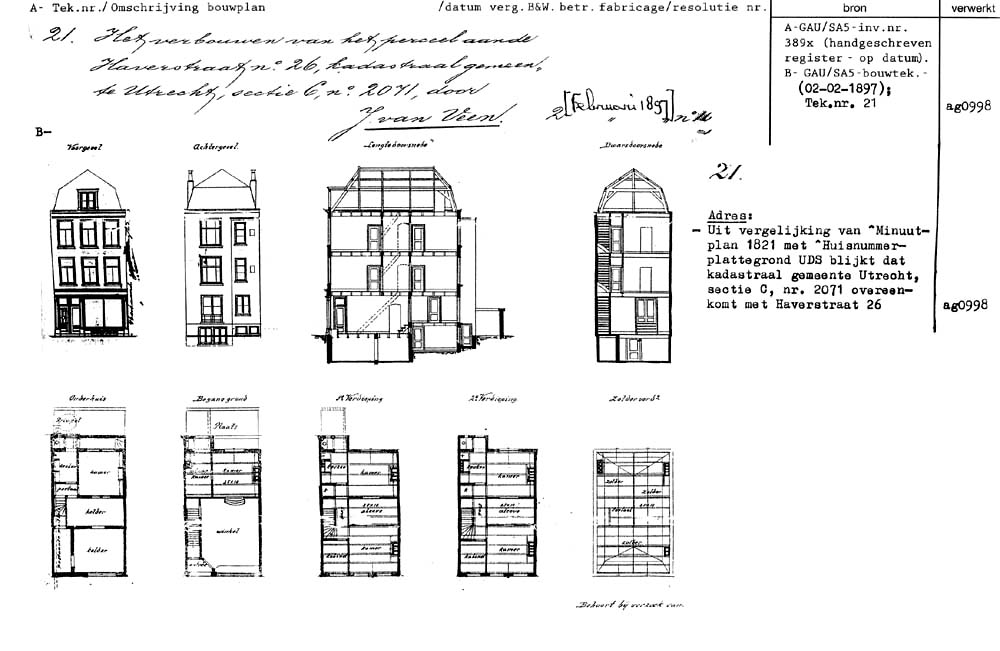 A- Tek.nr./Omschrijving bouwplan /datum verg.B&W.betr.fabricage/resolutie nr.
bron
verwerkt
21. Het verbouwen van het perceel aan de
Haverstraat, no. 26, kadastraal gemeen,
te Utrecht, sectie C, no. 2071, door
J. van Veen.
2 [Februari 1897] no
A-GAU/SA5-inv.nr.
389x (handgeschreven
register - op datum).
B- GAU/SA5-bouwtek.-
(02-02-1897);
Tek.nr. 21
ag0998
B-
Voorgevel
Achtergevel.
Lengtedoorsnede
Dwarsdoorsnede
21.
Adres:
- Uit vergelijking van ^Minuut-
plan 1821 met ^Huisnummer-
plattegrond UDS blijkt dat
kadastraal gemeente Utrecht,
sectie C, nr. 2071 overeen-
komt met Haverstraat 26
ag0998
Onderhuis
Begane grond
1e Verdieping
2e Verdieping
Plaats
keuken
kamer
portaal
kelder
kelder
kamer
winkel
kamer
alcove
kamer
kamer
alcove
kamer
zolder
zolder
zolder
Behoort bij verzoek van